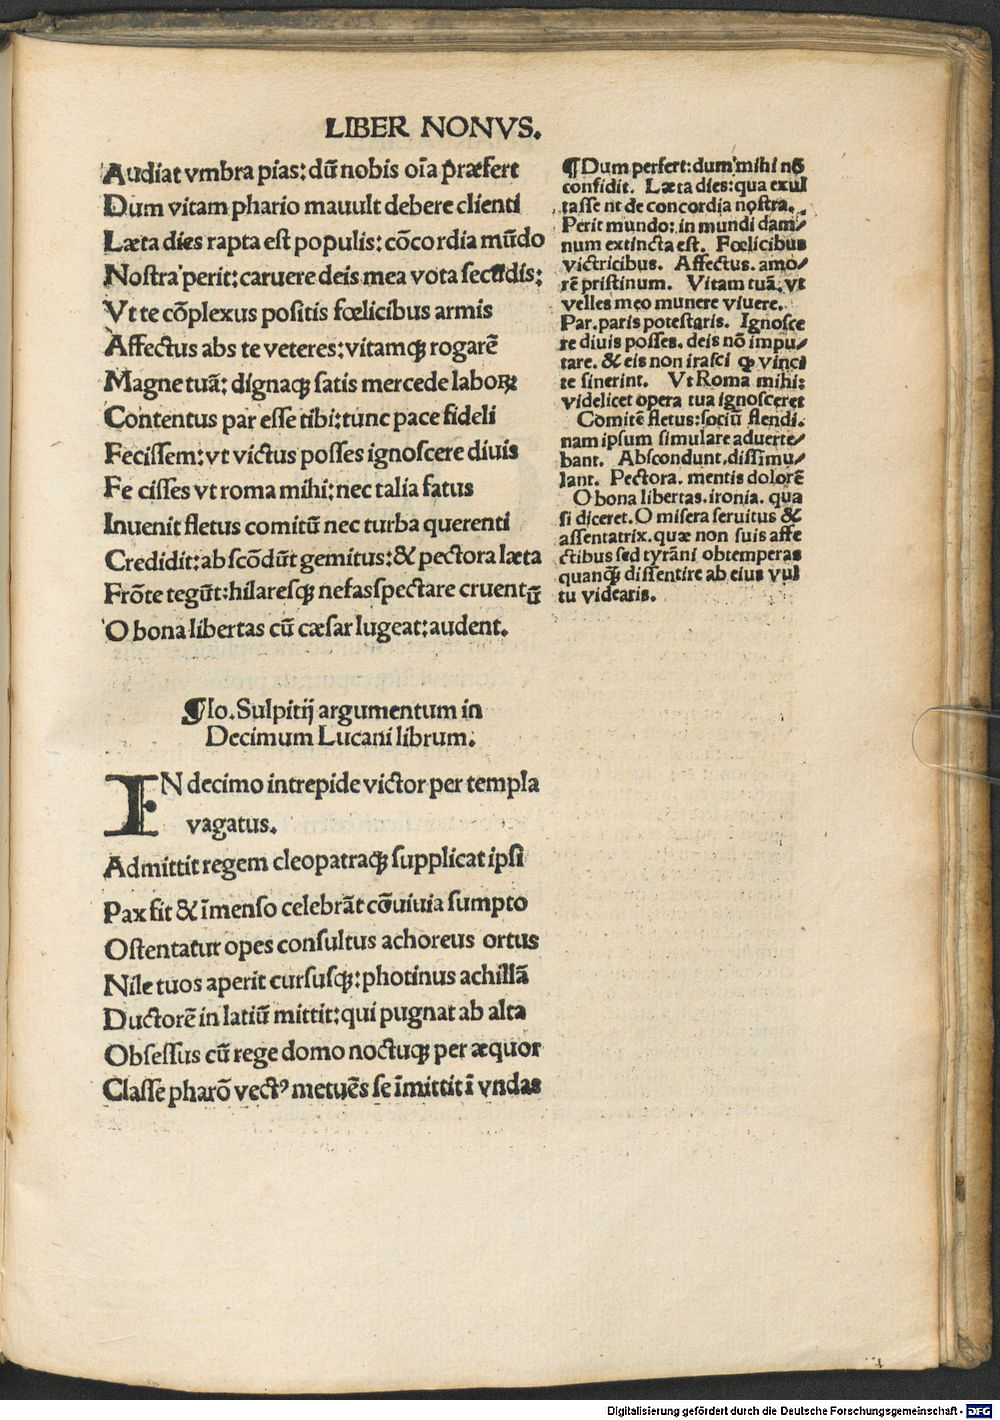 LIBER NONVS.
Audiat vmbra pias: dū nobis oīa præfert
Dum vitam phario mauult debere clienti
Læta dies rapta est populis: cōcordia mūdo
Nostra perit: caruere deis mea vota secūdis:
Vt te cōplexus positis fœlicibus armis
Affectus abs te veteres: vitamqꝫ rogarē
Magne tuā: dignaqꝫ satis mercede laboꝝ
Contentus par esse tibi: tunc pace fideli
Fecissem: vt victus posses ignoscere diuis
Fe cisses vt roma mihi: nec talia fatus
Inuenit fletus comitū nec turba querenti
Credidit: abscōdūt gemitus: & pectora læta
Frōte tegūt: hilaresqꝫ nefas spectare cruentū
O bona libertas cū cæsar lugeat: audent.
¶ Dum perfert: dum mihi nō
confidit. Læta dies: qua exul
tasse nt de concordia nostra.
Perit mundo: in mundi dam/
num extincta est. Fœlicibus
victricibus. Affectus. amo/
rē pristinum. Vitam tuā. vt
velles meo munere viuere.
Par. paris potestatis. Ignosce
re diuis posses. deis nō impu/
tare. & eis non irasci ꝙ vinci
te sinerint. Vt Roma mihi:
videlicet opera tua ignosceret
Comitē fletus: sociū flendi.
nam ipsum simulare aduerte/
bant. Abscondunt. dissimu/
lant. Pectora. mentis dolorē
O bona libertas. ironia. qua
si diceret. O misera seruitus &
assentatrix. quæ non suis affe
ctibus sed tyrāni obtemperas
quanqꝫ dissentire ab eius vul
tu videaris.
¶ Io. Sulpitij argumentum in
Decimum Lucani librum.
IN decimo intrepide victor per templa
vagatus.
Admittit regem cleopatraqꝫ supplicat ipsi
Pax fit & īmenso celebrāt cōuiuia sumpto
Ostentatur opes consultus achoreus ortus
Nile tuos aperit cursusqꝫ: photinus achillā
Ductorē in latiū mittit: qui pugnat ab alta
Obsessus cū rege domo noctuqꝫ per æquor
Classe pharō vectꝰ metuēs se īmittit ī vndas
Digitalisierung gefördert durch die Deutsche Forschungsgemeinschaft - DFG